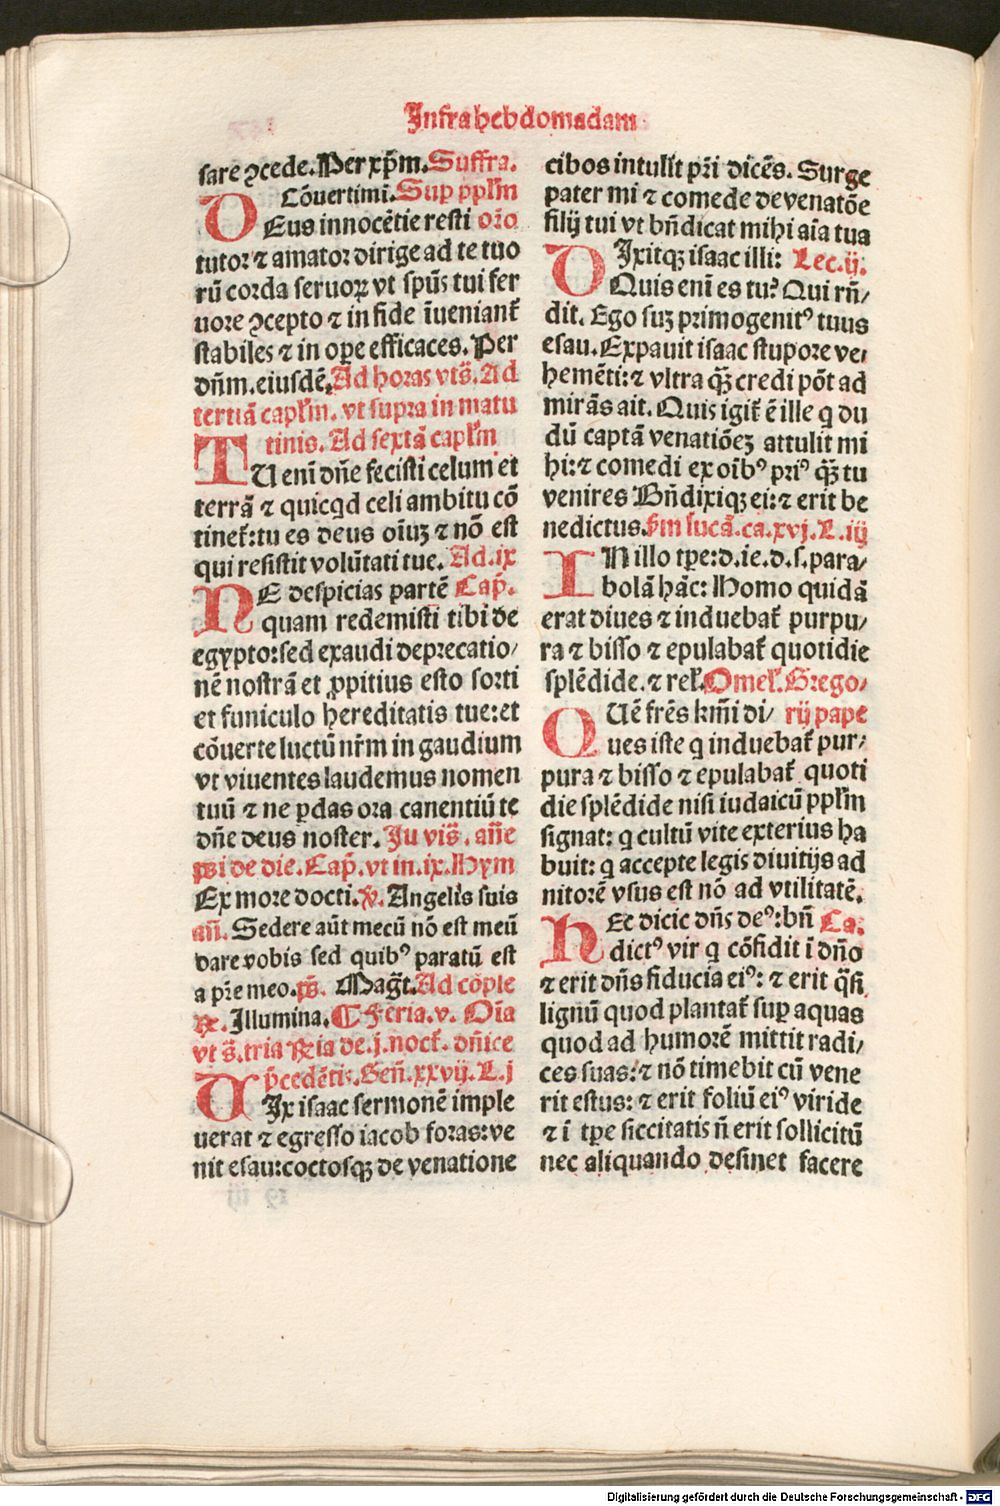 Infra hebdomadam
sare ꝯcede. Per xp̄m. Suffra.
Cōuertimi. Sup ppl'm
DEus innocētie resti oro
tutor ⁊ amator dirige ad te tuo
rū corda seruoꝝ vt spūs tui fer
uore ꝯcepto ⁊ in fide īueniant᷑
stabiles ⁊ in oꝑe efficaces. Per
dn̄m. eiusdē. Ad horas vts̄. Ad
tertiā capl'm. vt supra in matu
tinis. Ad sextā capl'm
TU eni dn̄e fecisti celum et
terrā ⁊ quicqd celi ambitu cō
tinet᷑: tu es deus oīuꝫ ⁊ nō est
qui resistit volūtati tue. Ad. ix
NE despicias partē Cap̄.
quam redemisti tibi de
egypto: sed exaudi deprecatio/
nē nostrā et ꝓpitius esto sorti
et funiculo hereditatis tue: et
cōuerte luctū nr̄m in gaudium
vt viuentes laudemus nomen
tuū ⁊ ne ꝑdas ora canentiū te
dn̄e deus noster. Ju vis̄. an̄e
psi de die. Cap̄. vt in. ix. Hym
Ex more docti. ℣. Angelis suis
an̄. Sedere aūt mecū nō est meū
dare vobis sed quibꝰ paratū est
a pr̄e meo. ps̄. Maḡt. Ad cōple
℞. Illumina. ¶ Feria. v. Oīa
vt s̄. tria ℞ia de. j. noct᷑. dn̄ice
p̄cedētis. Gen̄. xxvij. L. j
VIx isaac sermonē imple
uerat ⁊ egresso iacob foras: ve
nit esau: coctosqꝫ de venatione
cibos intulit pr̄i dicēs. Surge
pater mi ⁊ comede de venatōe
filij tui vt bn̄dicat mihi aīa tua
DIxitqꝫ isaac illi: Lec. ij.
Quis enī es tu? Qui rn̄/
dit. Ego suꝫ primogenitꝰ tuus
esau. Expauit isaac stupore ve/
hemēti: ⁊ vltra qꝫ̄ credi pōt ad
mirās ait. Quis igit᷑ ē ille q du
dū captā venatiōeꝫ attulit mi
hi: ⁊ comedi ex oībꝰ priꝰ qꝫ̄ tu
venires Bn̄dixiqꝫ ei: ⁊ erit be
nedictus. Sm lucā. ca. xvj. L. iij
IN illo tꝑe: d. ie. d. s. para/
bolā hāc: Homo quidā
erat diues ⁊ induebat᷑ purpu/
ra ⁊ bisso ⁊ epulabat᷑ quotidie
splēdide. ⁊ rel'. Omel'. Grego/
QUē frēs kmī di/ rij pape
ues iste q induebat᷑ pur/
pura ⁊ bisso ⁊ epulabat᷑ quoti
die splēdide nisi iudaicū ppl'm
signat: q cultū vite exterius ha
buit: q accepte legis diuitijs ad
nitorē vsus est nō ad vtilitatē.
HEc dicic dn̄s deꝰ: bn̄ Ca.
dictꝰ vir q cōfidit ī dn̄o
⁊ erit dn̄s fiducia eiꝰ: ⁊ erit q̄si
lignū quod plantat᷑ suꝑ aquas
quod ad humorē mittit radi/
ces suas: ⁊ nō timebit cū vene
rit estus: ⁊ erit foliū eiꝰ viride
⁊ ī tꝑe siccitatis n̄ erit sollicitū
nec aliquando desinet facere
Digitalisierung gefördert durch die Deutsche Forschungsgemeinschaft - DFG